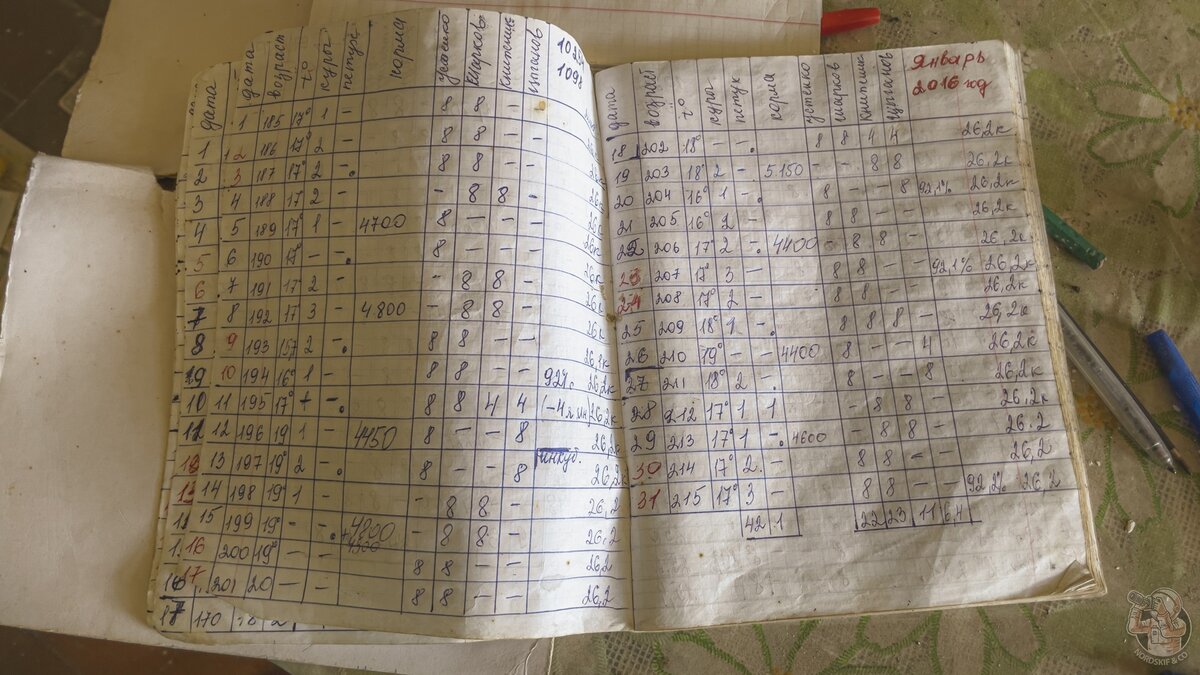 дата возраст t° куры петух корма устенко шарков книтеник цыганов
1 185 17° 1 - 8 8 -
2 186 17° 2 - 8 8 - -
3 187 17° 2 - 8 8 - -
4 188 17 2 - - 8 8 - 26к
5 189 17° 1 - 4700 8 - - - 26к
6 190 17 - - 8 - - - 26к
7 191 17 2 - - 8 8 - 26к
8 192 17 3 - 4.800 - 8 8 - 26к
9 193 157 2 - 8 8 - - 26к
10 194 16° 1 - 8 8 - - 26,2к
11 195 17° - 8 8 4 4 26,2к
12 196 19 1 - 4450 8 - - 8
инкуб.
13 197 19° 2 - 8 - - 8 26,2
14 198 19° 1 - - 8 8 - 26,2
15 199 19° - - 4800 - 8 8 - 26,2
16 200 19° - - 8 8 - - 26,2
17 201 20 - - 8 8 - - 26,2
январь
2016 год
дата возраст t° куры петух корма устенко шарков книтеник цыганов
18 202 18° - - 8 8 4 4 26,2к
19 203 18° 2 - 5150 - - 8 8 26,2к
20 204 16° 1 - 8 - - 8 92,1% 26,2к
21 205 16° 2 - 8 8 - - 26,2к
22 206 17° 2 - 4400 - 8 8 - 26,2к
23 207 17° 3 - 8 8 - - 92,1% 26,2к
24 208 17° 2 - 8 8 - - 26,2к
25 209 18° 1 - 8 8 8 - 26,2к
26 210 19° - - 4400 8 - - 4 26,2к
27 211 18° 2 - 8 - - 8 26,2к
28 212 17° 1 1 - 8 8 - 26,2к
29 213 17° 1 - 4600 - 8 8 - 26.2
30 214 17° 2 - 8 8 - - 26,2
31 215 17° 3 - 8 8 - - 92,2% 26,2
42 1 22 23 11 6,4
NORDSKIF & CO